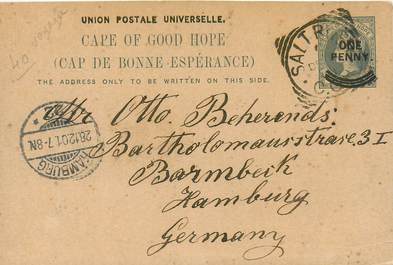 UNION POSTALE UNIVERSELLE.
CAPE OF GOOD HOPE
(CAP DE BONNE-ESPÉRANCE)
THE ADDRESS ONLY TO BE WRITTEN ON THIS SIDE.
ONE
PENNY.
SALT R
Mr Otto. Beherends.
Bartholomausstrasse. 31
Barmbeck
Hamburg
Germany
HAMBURG
28.12.01.7-8N.
22